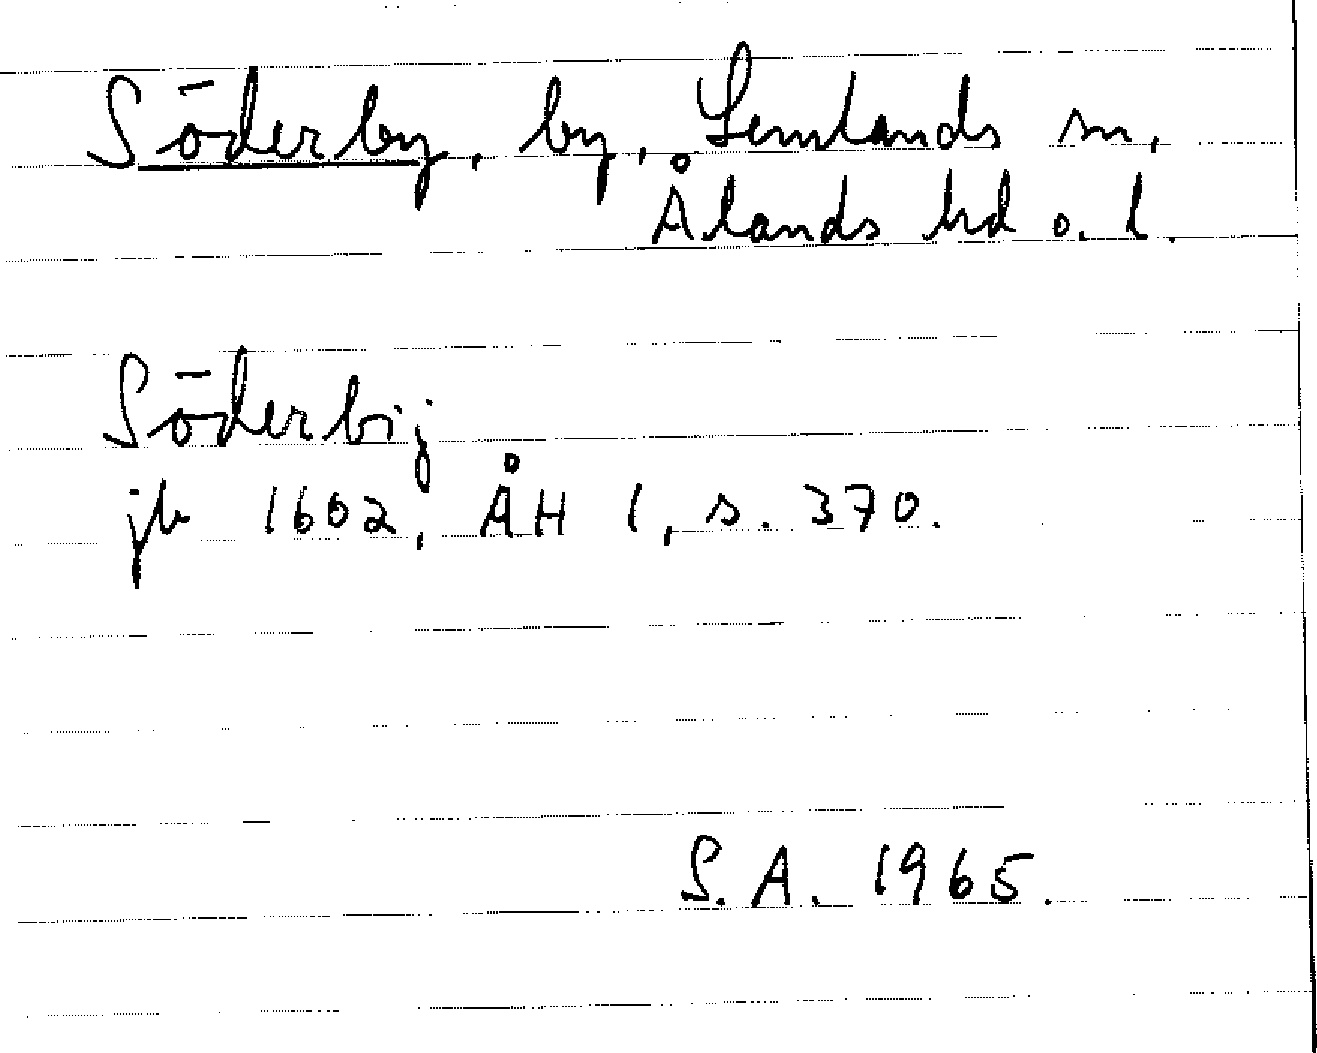 Söderby, by, Lemlands sn,
Ålands hd o. l.
Söderbij
jb 1602, ÅH 1, s. 370.
S. A. 1965.